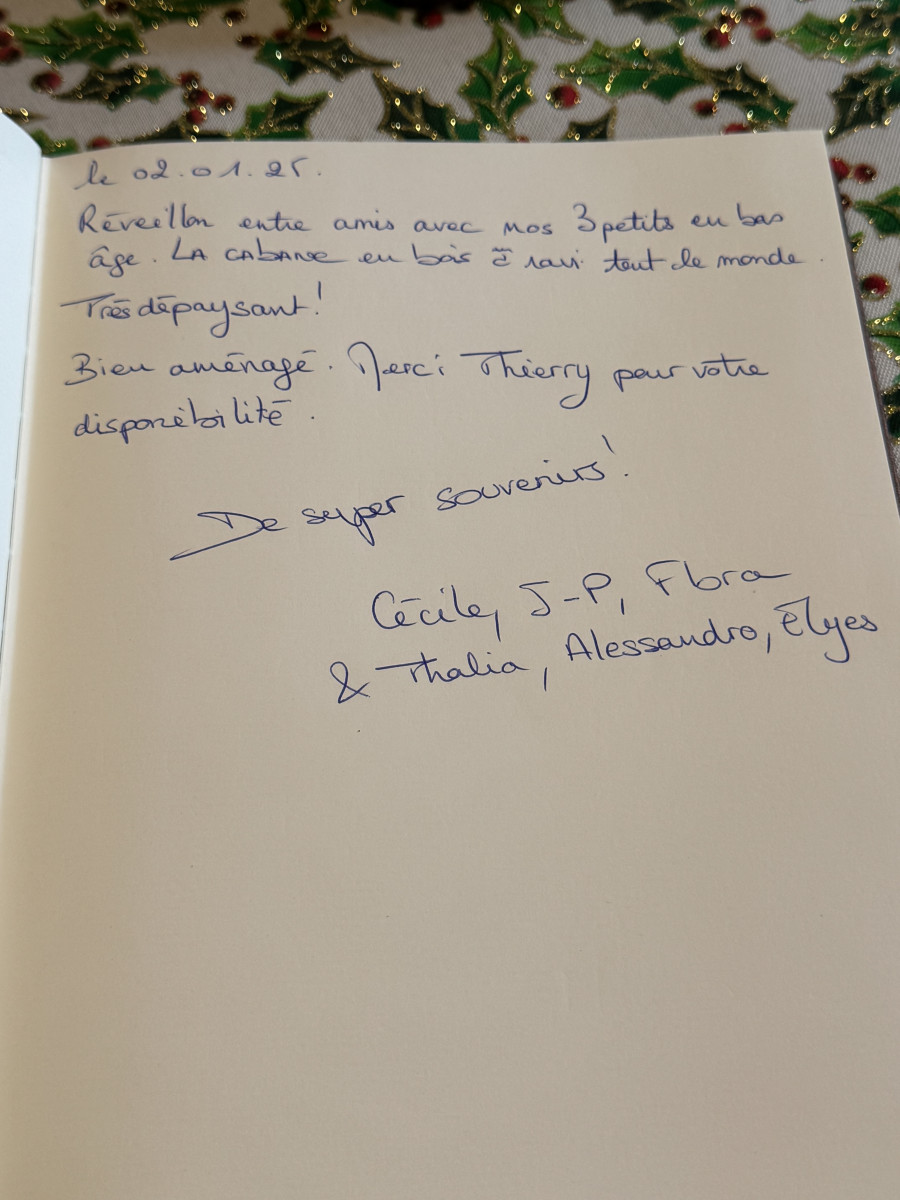 le 02.01.25.
Réveillon entre amis avec nos 3 petits en bas
âge. LA CABANE en bois à ravi tout le monde.
Très dépaysant!
Bien aménagé. Merci Thierry pour votre
disponibilité.
De super souvenirs!
Cécile, J-P, Flora
& Thalia, Alessandro, Élyes